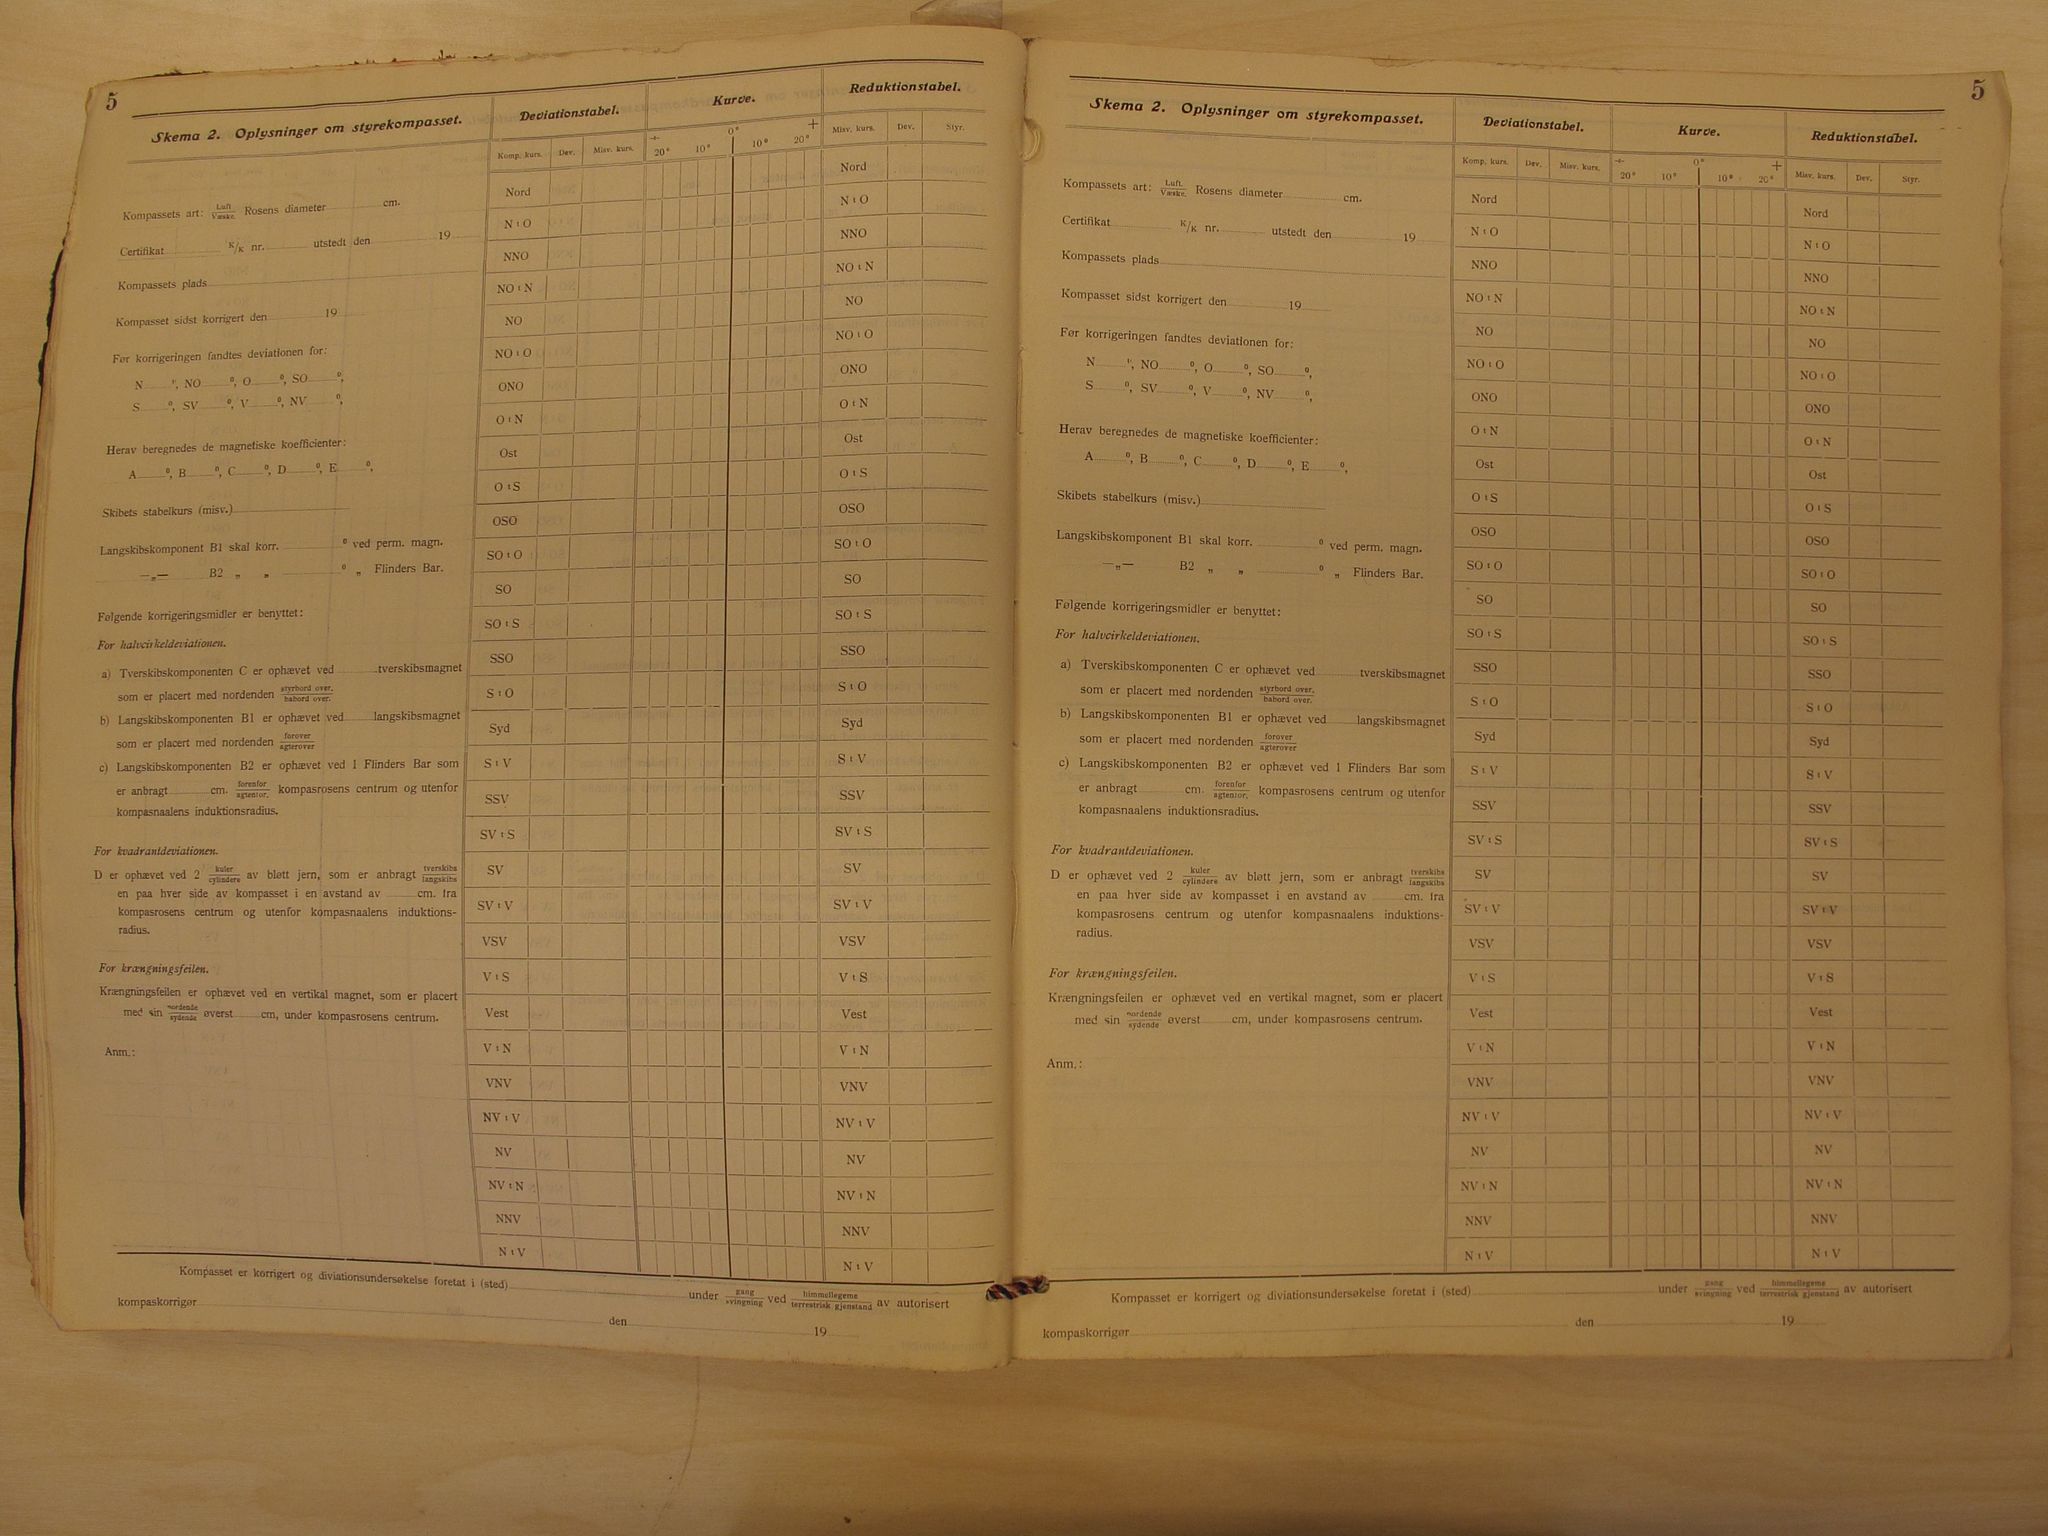 5
Skema 2. Oplysninger om styrekompasset.
Kompassets art: Luft. Væske. Rosens diameter cm.
Certifikat K/K nr. utstedt den 19
Kompassets plads
Kompasset sidst korrigert den 19
Før korrigeringen fandtes deviationen for:
N °, NO °, O °, SO °,
S °, SV °, V °, NV °,
Herav beregnedes de magnetiske koefficienter:
A °, B °, C °, D °, E °,
Skibets stabelkurs (misv.)
Langskibskomponent B1 skal korr. ° ved perm. magn.
—„— B2 „ „ ° „ Flinders Bar.
Følgende korrigeringsmidler er benyttet:
For halvcirkeldeviationen.
a) Tverskibskomponenten C er ophævet ved tverskibsmagnet
som er placert med nordenden styrbord over. babord over.
b) Langskibskomponenten B1 er ophævet ved langskibsmagnet
som er placert med nordenden forover agterover
c) Langskibskomponenten B2 er ophævet ved 1 Flinders Bar som
er anbragt cm. forenfor agtenfor. kompasrosens centrum og utenfor
kompasnaalens induktionsradius.
For kvadrantdeviationen.
D er ophævet ved 2 kuler cylindere av bløtt jern, som er anbragt tverskibs langskibs
en paa hver side av kompasset i en avstand av cm. fra
kompasrosens centrum og utenfor kompasnaalens induktions-
radius.
For krængningsfeilen.
Krængningsfeilen er ophævet ved en vertikal magnet, som er placert
med sin nordende sydende øverst cm, under kompasrosens centrum.
Anm.:
Deviationstabel. Kurve. Reduktionstabel.
Komp. kurs. Dev. Misv. kurs. ÷ 20° 10° 0° 10° 20° + Misv. kurs. Dev. Styr.
Nord Nord
N t O N t O
NNO NNO
NO t N NO t N
NO NO
NO t O NO t O
ONO ONO
O t N O t N
Ost Ost
O t S O t S
OSO OSO
SO t O SO t O
SO SO
SO t S SO t S
SSO SSO
S t O S t O
Syd Syd
S t V S t V
SSV SSV
SV t S SV t S
SV SV
SV t V SV t V
VSV VSV
V t S V t S
Vest Vest
V t N V t N
VNV VNV
NV t V NV t V
NV NV
NV t N NV t N
NNV NNV
N t V N t V
Kompasset er korrigert og diviationsundersøkelse foretat i (sted) under gang svingning ved himmellegeme terrestrisk gjenstand av autorisert
kompaskorrigør den 19
5
Skema 2. Oplysninger om styrekompasset.
Kompassets art: Luft. Væske. Rosens diameter cm.
Certifikat K/K nr. utstedt den 19
Kompassets plads
Kompasset sidst korrigert den 19
Før korrigeringen fandtes deviationen for:
N °, NO °, O °, SO °,
S °, SV °, V °, NV °,
Herav beregnedes de magnetiske koefficienter:
A °, B °, C °, D °, E °,
Skibets stabelkurs (misv.)
Langskibskomponent B1 skal korr. ° ved perm. magn.
—„— B2 „ „ ° „ Flinders Bar.
Følgende korrigeringsmidler er benyttet:
For halvcirkeldeviationen.
a) Tverskibskomponenten C er ophævet ved tverskibsmagnet
som er placert med nordenden styrbord over. babord over.
b) Langskibskomponenten B1 er ophævet ved langskibsmagnet
som er placert med nordenden forover agterover
c) Langskibskomponenten B2 er ophævet ved 1 Flinders Bar som
er anbragt cm. forenfor agtenfor. kompasrosens centrum og utenfor
kompasnaalens induktionsradius.
For kvadrantdeviationen.
D er ophævet ved 2 kuler cylindere av bløtt jern, som er anbragt tverskibs langskibs
en paa hver side av kompasset i en avstand av cm. fra
kompasrosens centrum og utenfor kompasnaalens induktions-
radius.
For krængningsfeilen.
Krængningsfeilen er ophævet ved en vertikal magnet, som er placert
med sin nordende sydende øverst cm, under kompasrosens centrum.
Anm.:
Deviationstabel. Kurve. Reduktionstabel.
Komp. kurs. Dev. Misv. kurs. ÷ 20° 10° 0° 10° 20° + Misv. kurs. Dev. Styr.
Nord Nord
N t O N t O
NNO NNO
NO t N NO t N
NO NO
NO t O NO t O
ONO ONO
O t N O t N
Ost Ost
O t S O t S
OSO OSO
SO t O SO t O
SO SO
SO t S SO t S
SSO SSO
S t O S t O
Syd Syd
S t V S t V
SSV SSV
SV t S SV t S
SV SV
SV t V SV t V
VSV VSV
V t S V t S
Vest Vest
V t N V t N
VNV VNV
NV t V NV t V
NV NV
NV t N NV t N
NNV NNV
N t V N t V
Kompasset er korrigert og diviationsundersøkelse foretat i (sted) under gang svingning ved himmellegeme terrestrisk gjenstand av autorisert
kompaskorrigør den 19